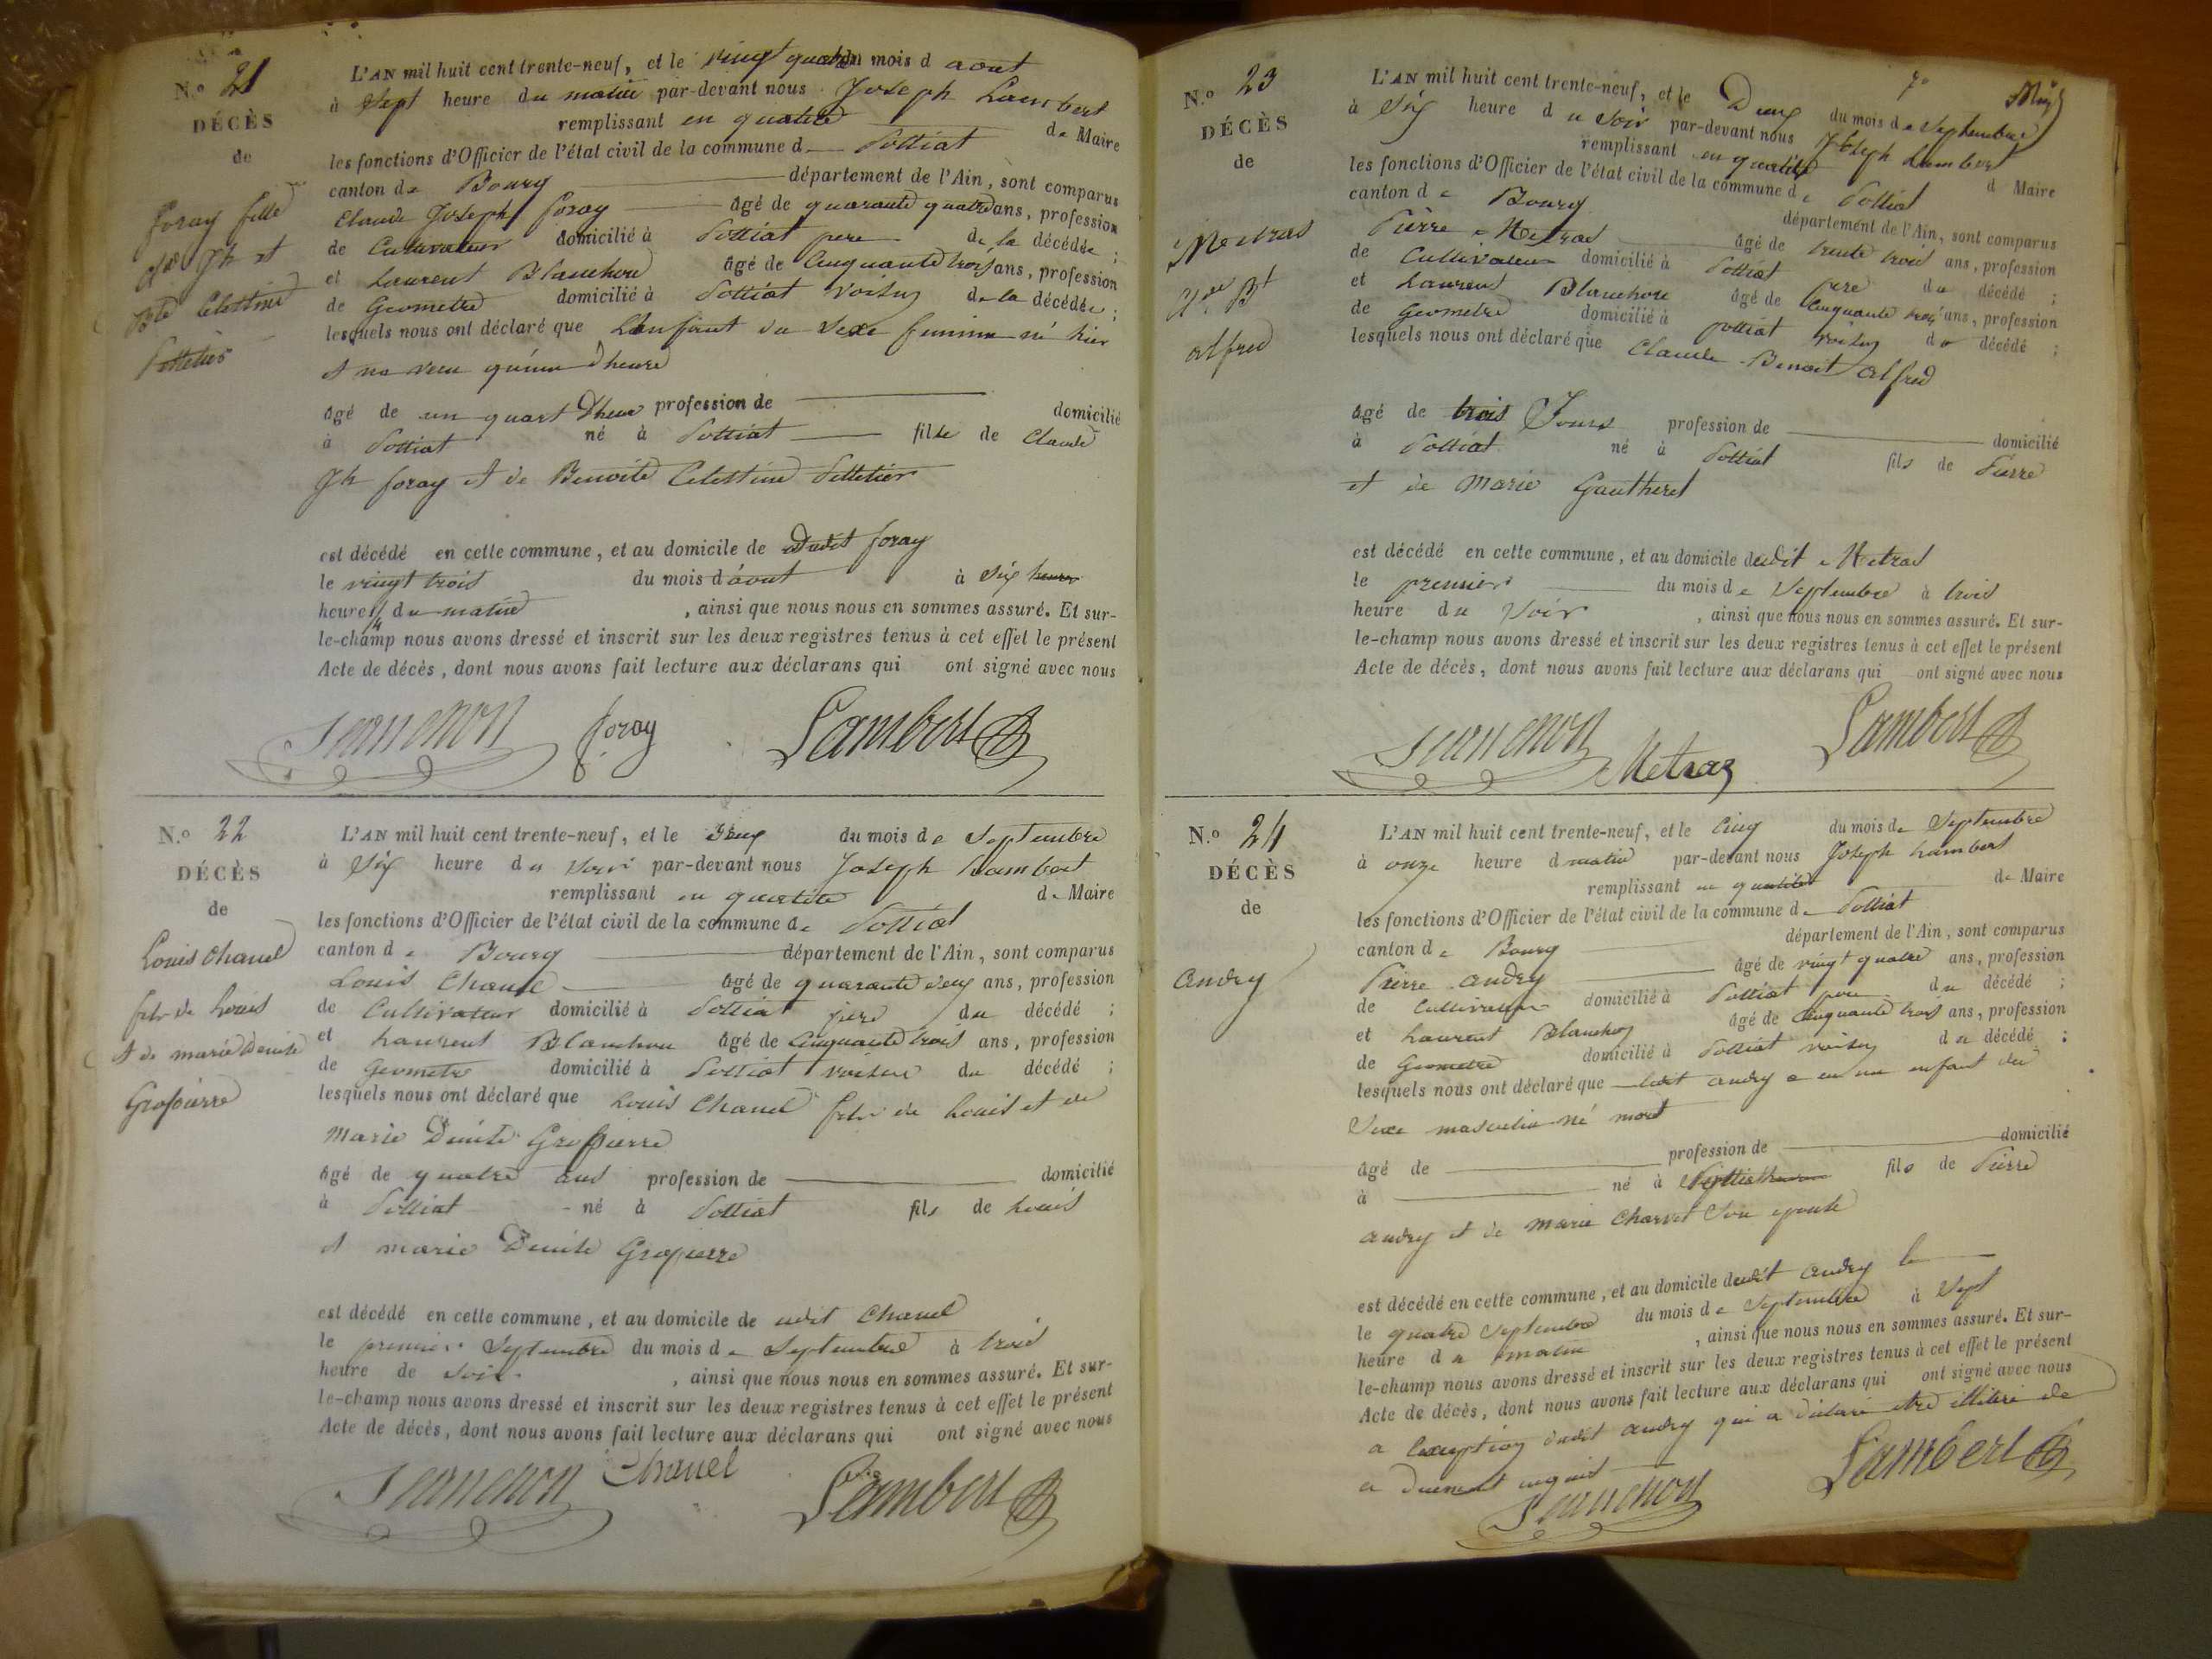 N.º 21
DÉCÈS
de
foray fille
de Jh et
Bte Celestine
Pelletier
L'AN mil huit cent trente-neuf, et le vingt quatre du mois d aout
à sept heure du matin par-devant nous Joseph Lambert
remplissant en qualité de Maire
les fonctions d'Officier de l'état civil de la commune d Polliat
canton de Bourg département de l'Ain, sont comparus
Claude Joseph foray âgé de quarante quatre ans, profession
de Cultivateur domicilié à Polliat pere de la décédée ;
et Laurent Blanchon âgé de Cinquante trois ans, profession
de Geometre domicilié à Polliat voisin de la décédée ;
lesquels nous ont déclaré que L'enfant du sexe feminin né hier
et na vecu qu'un d'heure
âgé de un quart D'heure profession de domicilié
à Polliat né à Polliat fille de Claude
Jh foray et de Benoite Celestine Pelletier
est décédé en cette commune, et au domicile de Dudit foray
le vingt trois du mois d'aout à six heures
heure 1/4 du matin , ainsi que nous nous en sommes assuré. Et sur-
le-champ nous avons dressé et inscrit sur les deux registres tenus à cet effet le présent
Acte de décès, dont nous avons fait lecture aux déclarans qui ont signé avec nous
foray Lambert
N.º 22
DÉCÈS
de
Louis Chanel
fils de Louis
et de marie Denise
Grospierre
L'AN mil huit cent trente-neuf, et le Deux du mois de Septembre
à Six heure du soir par-devant nous Joseph Lambert
remplissant en qualité de Maire
les fonctions d'Officier de l'état civil de la commune de Polliat
canton de Bourg département de l'Ain, sont comparus
Louis Chanel âgé de quarante deux ans, profession
de Cultivateur domicilié à Polliat père du décédé ;
et Laurent Blanchon âgé de Cinquante trois ans, profession
de Geometre domicilié à Polliat voisin du décédé ;
lesquels nous ont déclaré que Louis Chanel fils de Louis et de
Marie Denise Grospierre
âgé de quatre ans profession de domicilié
à Polliat né à Polliat fils de Louis
et marie Denise Grospierre
est décédé en cette commune, et au domicile de udit Chanel
le premier Septembre du mois de Septembre à trois
heure de soir , ainsi que nous nous en sommes assuré. Et sur-
le-champ nous avons dressé et inscrit sur les deux registres tenus à cet effet le présent
Acte de décès, dont nous avons fait lecture aux déclarans qui ont signé avec nous
Chanel Lambert
N.º 23
DÉCÈS
de
Metras
Cde Bt
alfred
L'AN mil huit cent trente-neuf, et le Deux du mois de Septembre
à Six heure du soir par-devant nous Joseph Lambert
remplissant en qualité d Maire
les fonctions d'Officier de l'état civil de la commune de Polliat
canton de Bourg département de l'Ain, sont comparus
Pierre Metras âgé de trente trois ans, profession
de Cultivateur domicilié à Polliat pere du décédé ;
et Laurent Blanchon âgé de Cinquante trois ans, profession
de Geometre domicilié à polliat voisin du décédé ;
lesquels nous ont déclaré que Claude Benoit alfred
âgé de trois Jours profession de domicilié
à Polliat né à Polliat fils de Pierre
et de Marie Gautheret
est décédé en cette commune, et au domicile dudit Metras
le premier du mois de Septembre à trois
heure du soir , ainsi que nous nous en sommes assuré. Et sur-
le-champ nous avons dressé et inscrit sur les deux registres tenus à cet effet le présent
Acte de décès, dont nous avons fait lecture aux déclarans qui ont signé avec nous
Metraz Lambert
N.º 24
DÉCÈS
de
Andry
L'AN mil huit cent trente-neuf, et le Cinq du mois de Septembre
à onze heure d matin par-devant nous Joseph Lambert
remplissant en qualité de Maire
les fonctions d'Officier de l'état civil de la commune de Polliat
canton de Bourg département de l'Ain, sont comparus
Pierre andry âgé de vingt quatre ans, profession
de Cultivateur domicilié à Polliat pere du décédé ;
et Laurent Blanchon âgé de Cinquante trois ans, profession
de Geometre domicilié à Polliat voisin du décédé ;
lesquels nous ont déclaré que ledit andry a eu un enfant du
Sexe masculin né mort
âgé de profession de domicilié
à né à fils de Pierre
andry et de Marie Charvet son epouse
est décédé en cette commune, et au domicile dudit andry le
le quatre Septembre du mois de Septembre à Sept
heure du matin , ainsi que nous nous en sommes assuré. Et sur-
le-champ nous avons dressé et inscrit sur les deux registres tenus à cet effet le présent
Acte de décès, dont nous avons fait lecture aux déclarans qui ont signé avec nous
a lexception dudit andry qui a déclaré etre illétré de
ce Duement requis
Lambert